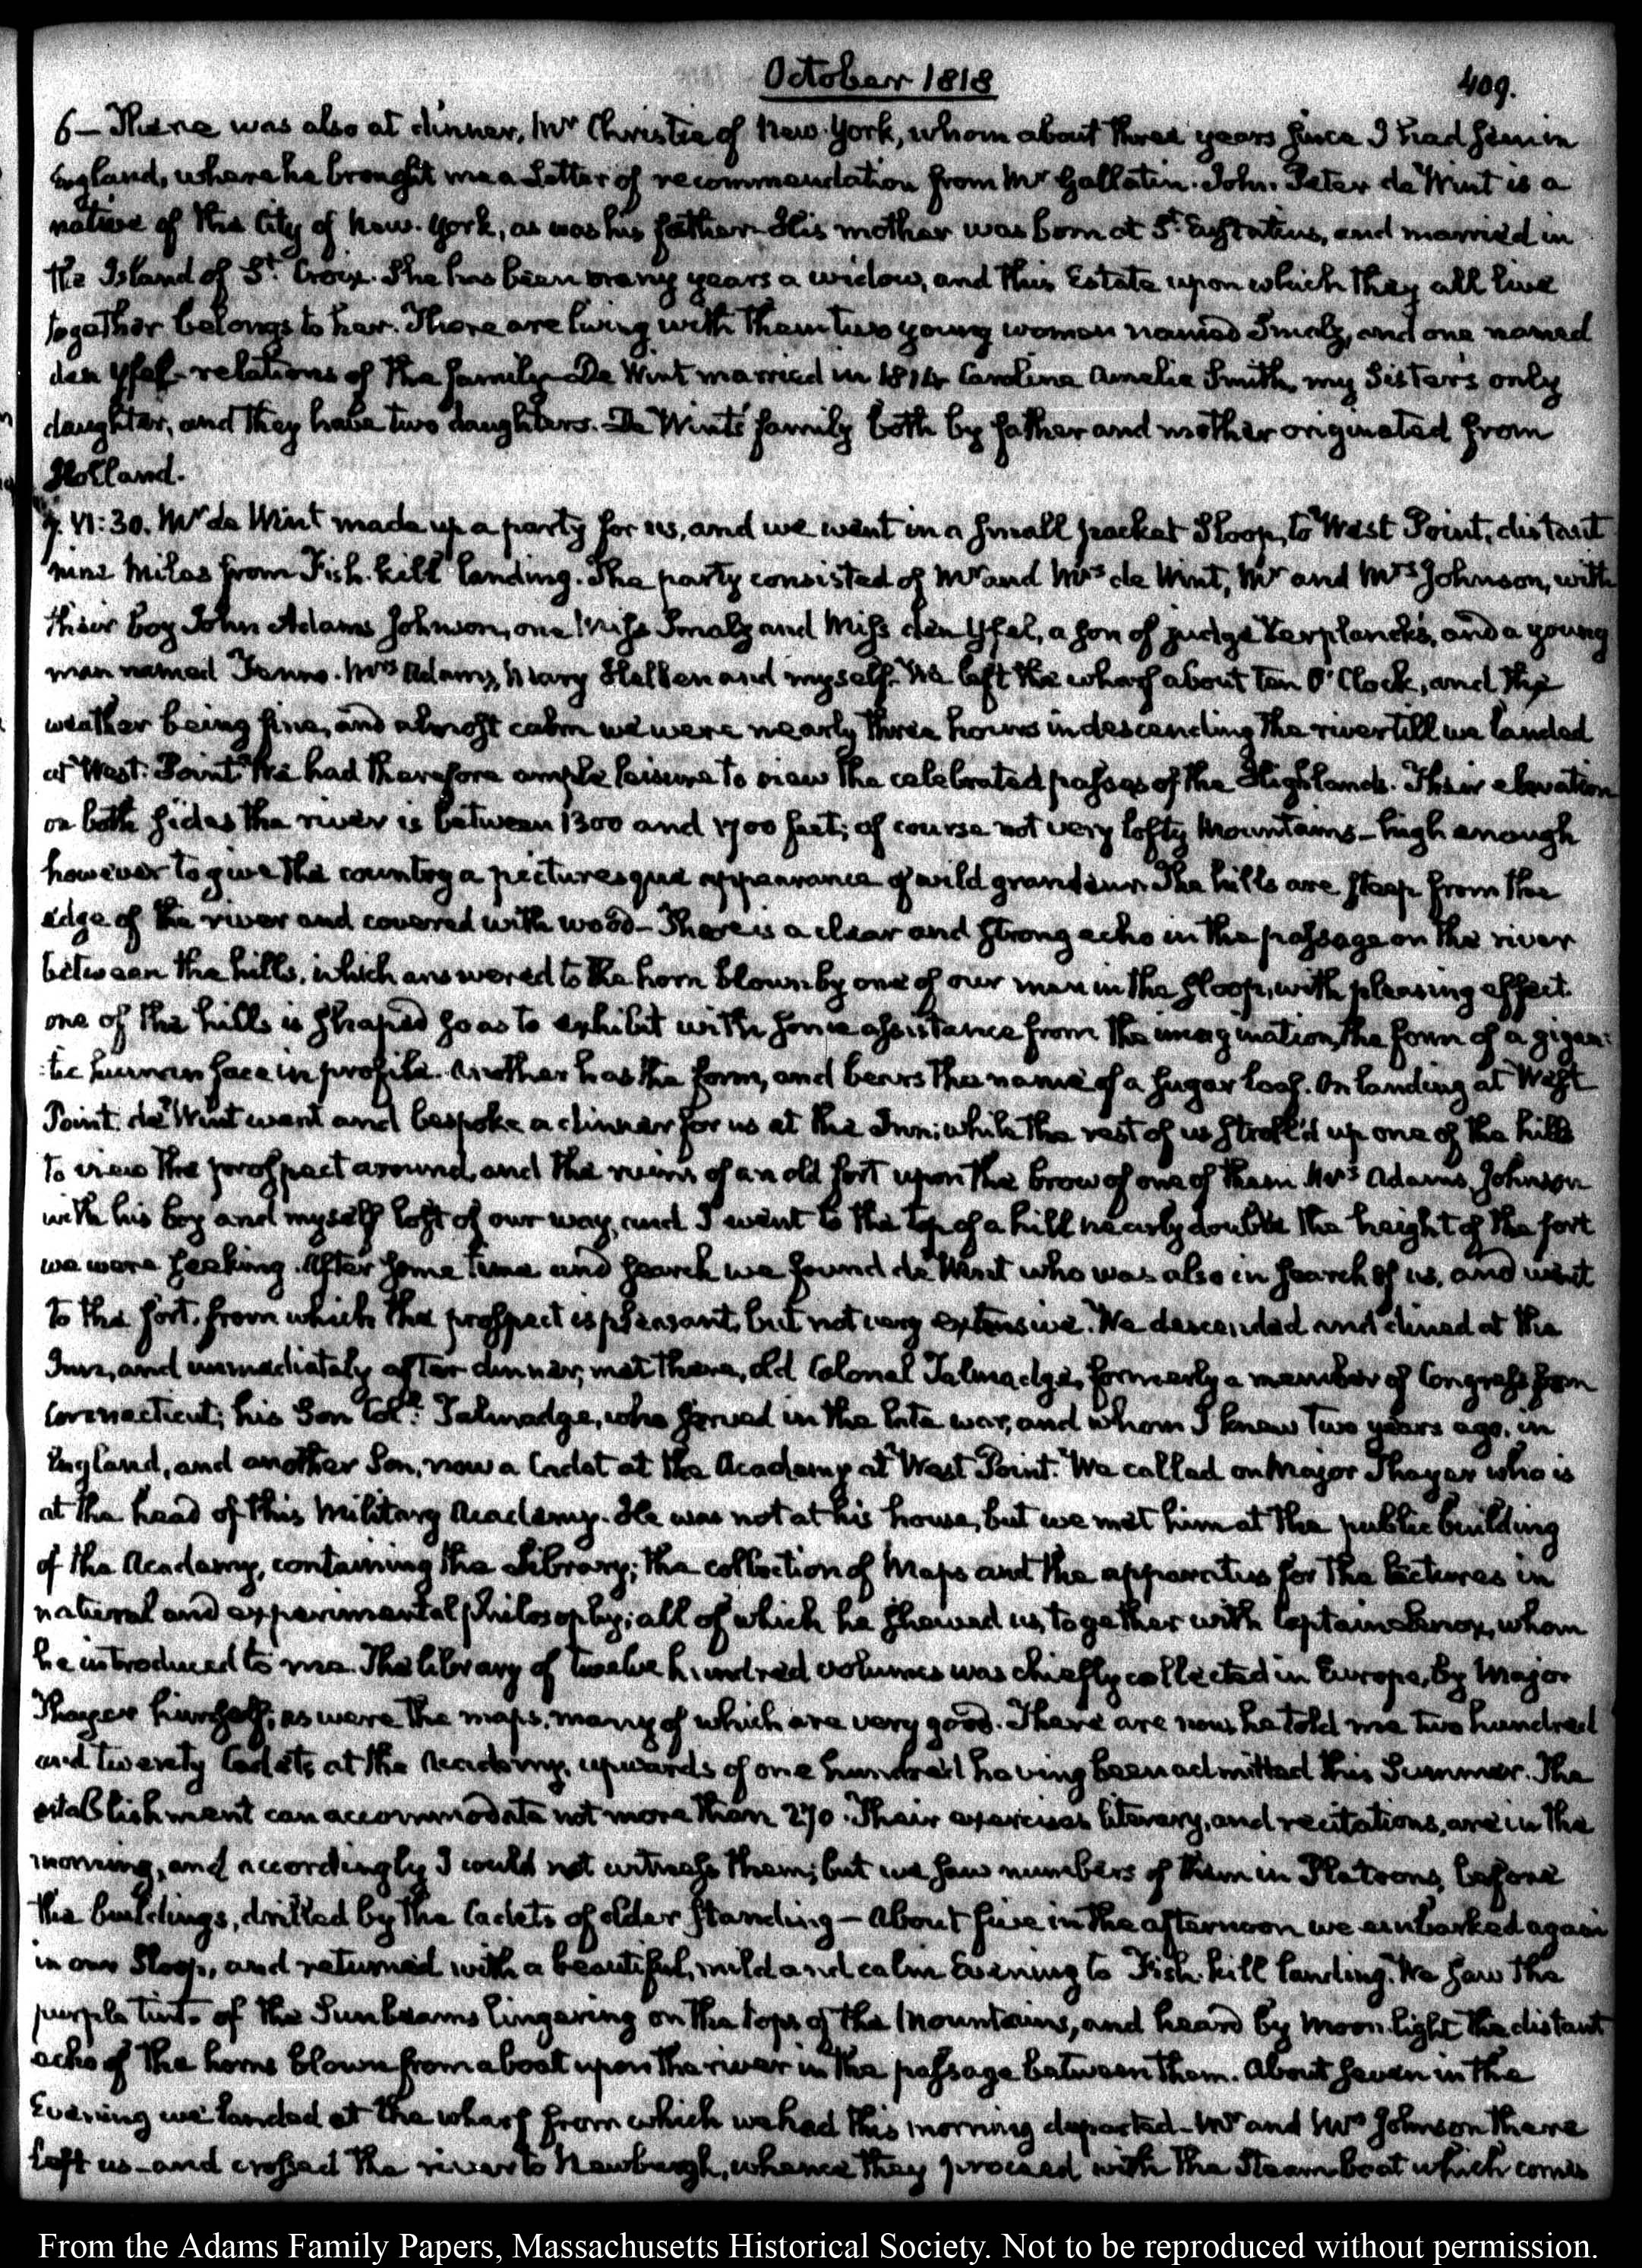 October 1818
409.
6 — There was also at dinner, Mr Christie of New-York, whom about three years since I had seen in
England, where he brought me a Letter of recommendation from Mr Gallatin. John Peter de Wint is a
native of the City of New-York, as was his father — His mother was born at St. Eustatius, and married in
the Island of St. Croix. She has been many years a widow, and this Estate upon which they all live
together belongs to her. There are living with them two young women named Smalz, and one named
den Ysel — relations of the family — De Wint married in 1814 Caroline Amelia Smith, my Sister's only
daughter, and they have two daughters. De Wint's family both by father and mother originated from
Holland.
7. VI:30. Mr de Wint made up a party for us, and we went in a small packet Sloop, to West Point, distant
nine Miles from Fish-kill landing. The party consisted of Mr and Mrs de Wint, Mr and Mrs Johnson, with
their boy John Adams Johnson, one Miss Smalz and Miss den Ysel, a son of judge Verplanck's, and a young
man named Fenno. Mrs Adams, Mary Hellen and myself. We left the wharf about ten O'Clock, and the
weather being fine, and almost calm we were nearly three hours in descending the river till we landed
at West-Point. We had therefore ample leisure to view the celebrated passes of the Highlands. Their elevation
on both sides the river is between 1300 and 1700 feet; of course not very lofty Mountains — high enough
however to give the country a picturesque appearance of wild grandeur. The hills are steep from the
edge of the river and covered with wood — There is a clear and strong echo in the passage on the river
between the hills, which answered to the horn blown by one of our men in the sloop, with pleasing effect.
one of the hills is shaped so as to exhibit with some assistance from the imagination, the form of a gigan:
:tic human face in profile. Another has the form, and bears the name of a sugar loaf. On landing at West
Point. de Wint went and bespoke a dinner for us at the Inn; while the rest of us stroll'd up one of the hills
to view the prospect around, and the ruins of an old fort upon the brow of one of them. Mrs Adams, Johnson
with his boy and myself lost of our way, and I went to the top of a hill nearly double the height of the fort
we were seeking. After some time and search we found de Wint who was also in search of us, and went
to the fort, from which the prospect is pleasant, but not very extensive. We descended and dined at the
Inn, and immediately after dinner, met there, old Colonel Talmadge, formerly a member of Congress from
Connecticut; his Son Coll. Talmadge, who served in the late war, and whom I knew two years ago, in
England, and another Son, now a Cadet at the Academy at West Point. We called on Major Thayer who is
at the head of this Military Academy. He was not at his house, but we met him at the public building
of the Academy, containing the Library; the collection of Maps and the apparatus for the lectures in
natural and experimental philosophy; all of which he shewed us, together with Captain Lenox, whom
he introduced to me. The library of twelve hundred volumes was chiefly collected in Europe, by Major
Thayer himself, as were the maps, many of which are very good. There are now he told me two hundred
and twenty Cadets at the Academy, upwards of one hundred having been admitted this Summer. The
establishment can accommodate not more than 270. Their exercises literary, and recitations, are in the
morning, and accordingly I could not witness them; but we saw numbers of them in Platoons, before
the buildings, drilled by the Cadets of older standing — About five in the afternoon we embarked again
in our Sloop, and returned with a beautiful, mild and calm Evening to Fish-kill landing. We saw the
purple tint of the Sunbeams lingering on the tops of the Mountains, and heard by Moon-light the distant
echo of the horns blown from a boat upon the river in the passage between them. About seven in the
Evening we landed at the wharf from which we had this morning departed — Mr and Mrs Johnson there
left us — and crossed the river to Newburgh, whence they proceed with the Steam-boat which comes
From the Adams Family Papers, Massachusetts Historical Society. Not to be reproduced without permission.